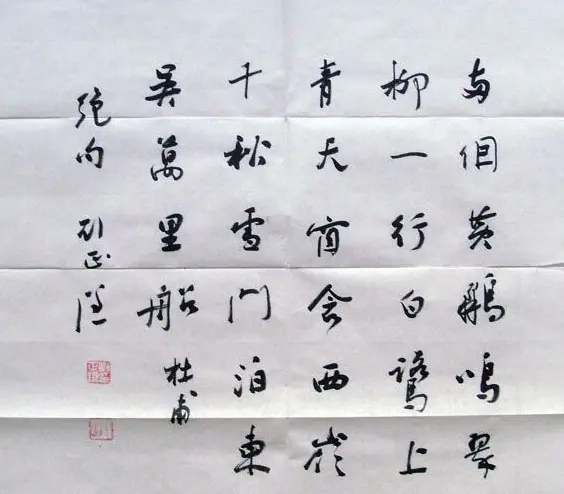 两個黄鸝鳴翠
柳一行白鷺上
青天窗含西嶺
千秋雪門泊東
吴萬里船 杜甫
絶句 刘正